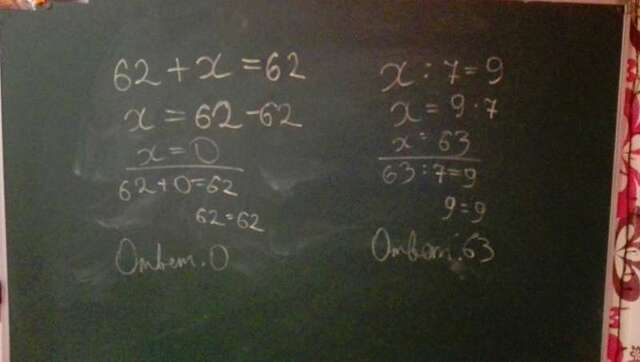 62 + x = 62
x = 62 - 62
x = 0
62 + 0 = 62
62 = 62
Ответ. 0
x : 7 = 9
x = 9 · 7
x = 63
63 : 7 = 9
9 = 9
Ответ: 63